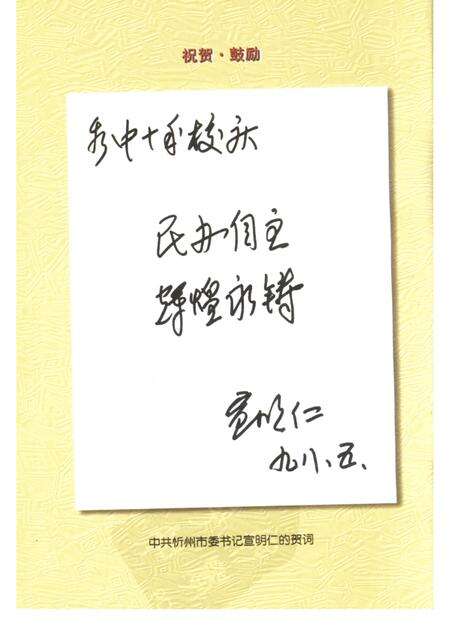 祝贺·鼓励
秀中十年校庆
民办自主
辉煌永铸
宣明仁
九八、五、
中共忻州市委书记宣明仁的贺词